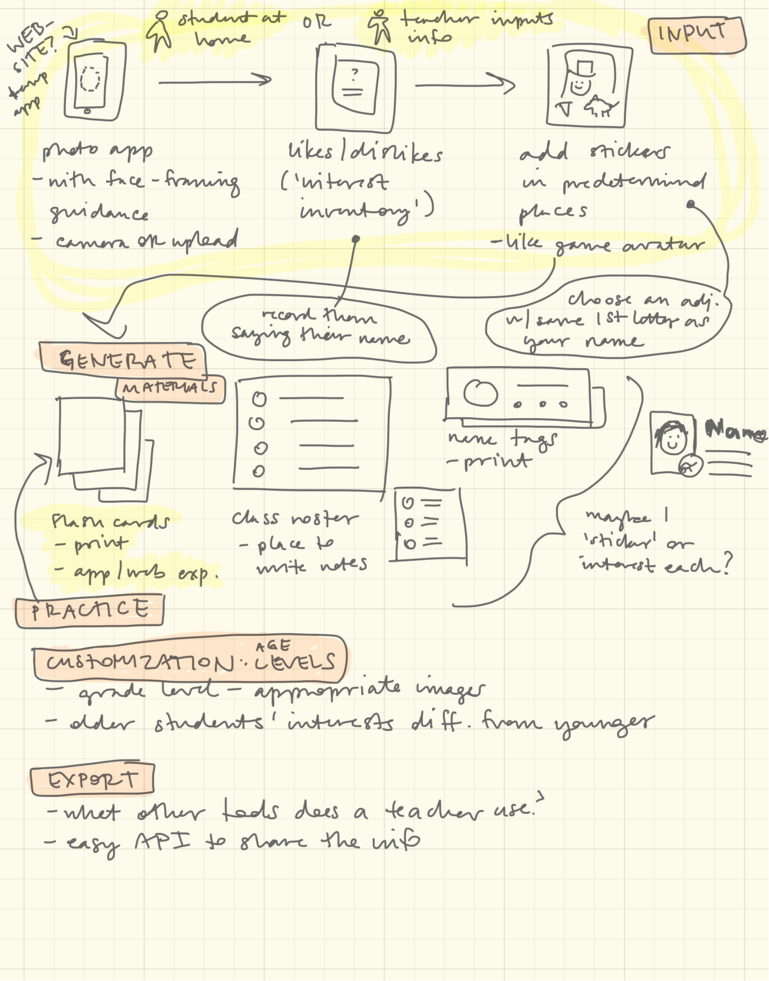 WEB-
SITE?
temp
app
student at
home
OR
teacher inputs
info
INPUT
?
photo app
- with face-framing
guidance
- camera or upload
likes/dislikes
('interest
inventory')
add stickers
in predetermind
places
- like game avatar
record them
saying their name
choose an adj.
w/ same 1st letter as
your name
GENERATE
MATERIALS
flash cards
- print
- app/web exp.
class roster
- place to
write notes
name tags
- print
Name
maybe 1
'sticker' or
interest each?
PRACTICE
CUSTOMIZATION: AGE LEVELS
- grade level - appropriate images
- older students' interests diff. from younger
EXPORT
- what other tools does a teacher use?
- easy API to share the info